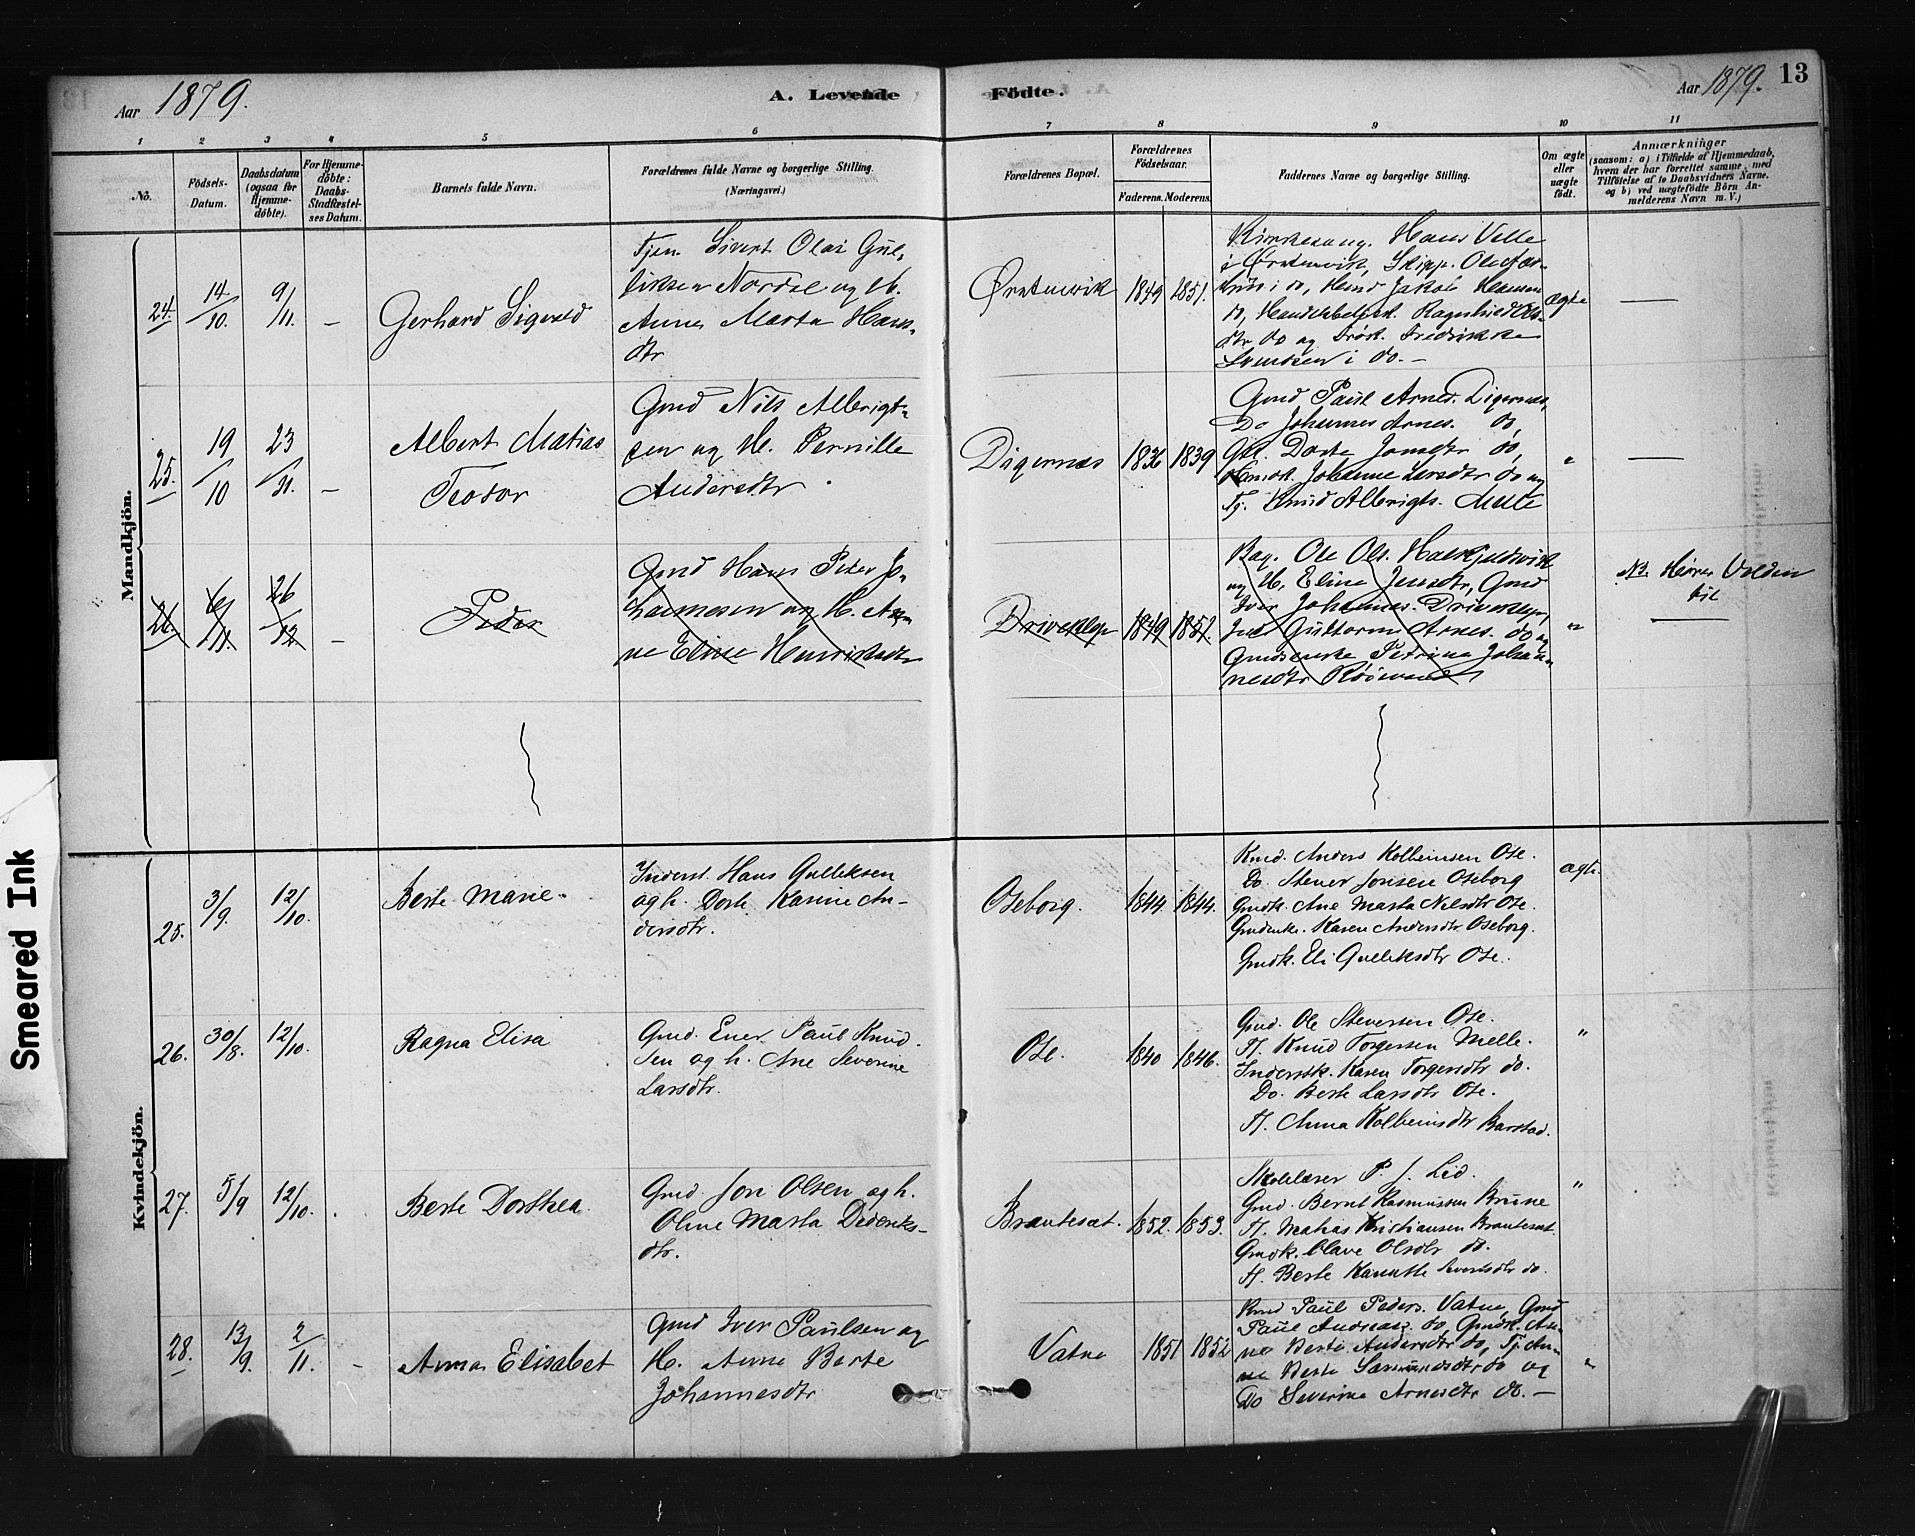 Aar 1879.
A. Levende
Födte.
Aar 1879.
13
1 2 3 4 5 6 7 8 9 10 11
No.
Födsels-
Datum.
Daabsdatum
(ogsaa for
Hjemme-
döbte).
For Hjemme-
döbte:
Daabs-
Stadfæstel-
ses Datum.
Barnets fulde Navn.
Forældrenes fulde Navne og borgerlige Stilling.
(Næringsvei.)
Forældrenes Bopæl.
Forældrenes
Födselsaar.
Faderens. Moderens.
Faddernes Navne og borgerlige Stilling.
Om ægte
eller
uægte
födt.
Anmærkninger
(saasom: a) i Tilfælde af Hjemmedaab,
hvem der har forrettet samme, med
Tilföielse af to Daabsvidners Navne.
og b) ved uægtefödte Börn An-
melderens Navn m. V.)
Mandkjön.
24. 14/10. 9/11. –
Gerhard Sigvald
Tjen. Sivert Olai Gul-
liksen Nordal og H.
Anne Marta Hans-
dtr
Ørstenvik 1849 1851.
Kirkesang. Hans Velle
i Ørstenvik, Skipp. Ole Aar-
i do, Jakob
do, Ragnhild Ols-
dtr do og Fredrikke
Svendsen i do. –
ægte
25. 19/10 23/11. –
Albert Matias
Teodor
Gmd Nils Albrigt-
sen og H. Pernille
Andersdtr
Digernæs 1836 1839
Gmd Paul Arnes. Digernæs,
Do Johannes Arnes. do,
Dorte Jonsdtr do,
Johanne Larsdtr do og
Tj. Knud Albrigts. Mele
"
26. 6/11. 26/12 –
Peder
Gmd Hans Peter Jo-
hannesen og H. An-
ne Eline Henriksdtr
Driveklep 1849 1852.
Ole Ols.
og H. Eline Jensdtr, Gmd
Iver Johannes. Driveklep,
Guttorm Arnes. do og
Gmdsenke Petrine Johan-
nesdtr
"
NB. Hører Volden
til
Kvindekjön.
25. 3/9. 12/10.
Berte Marie.
Inderst. Hans Gulleksen
og h. Dorte Karine An-
dersdtr.
Oseborg. 1844. 1844.
Kmd. Anders Kolbeinsen Ose.
Do. Stener Jonsen Oseborg
Gmdk. Ane Marta Nilsdtr Ose.
Gmdenke. Karen Andersdtr Oseborg.
Gmdk. Eli Gulleksdtr Ose.
ægte.
26. 30/8. 12/10.
Ragna Elisa
Gmd. Ener Paul Knud-
sen og h. Ane Severine
Larsdtr.
Ose. 1840 1846.
Gmd. Ole Steversen Ose.
H. Knud Torgersen Melle.
Inderstk. Karen Torgersdtr do.
Do. Berte Larsdtr Ose.
H. Anna Kolbeinsdtr Barstad.
"
27. 5/9 12/10.
Berte Dorthea
Gmd. Jon Olsen og h.
Oline Marta Dideriks-
dtr.
Brautesæt. 1852. 1853.
Skolelærer P. J. Lid.
Gmd. Bernt Rasmussen Brune
H. Matias Kristiansen Brautesæt
Gmdk. Olave Olsdtr do.
H. Berte Karnitle Sivertsdtr do.
"
28. 13/9. 2/11. –
Anna Elisabet
Gmd Iver Paulsen og
H. Anne Berte
Johannesdtr
Vatne 1851 1852
Kmd Paul Peders. Vatne, Gmd
Paul Andreas. do, Gmdk. An-
ne Berte Andersdtr do, Tj. An-
ne Berte Samundsdtr do og
Do Severine Arnesdtr do. –
"
Smeared Ink